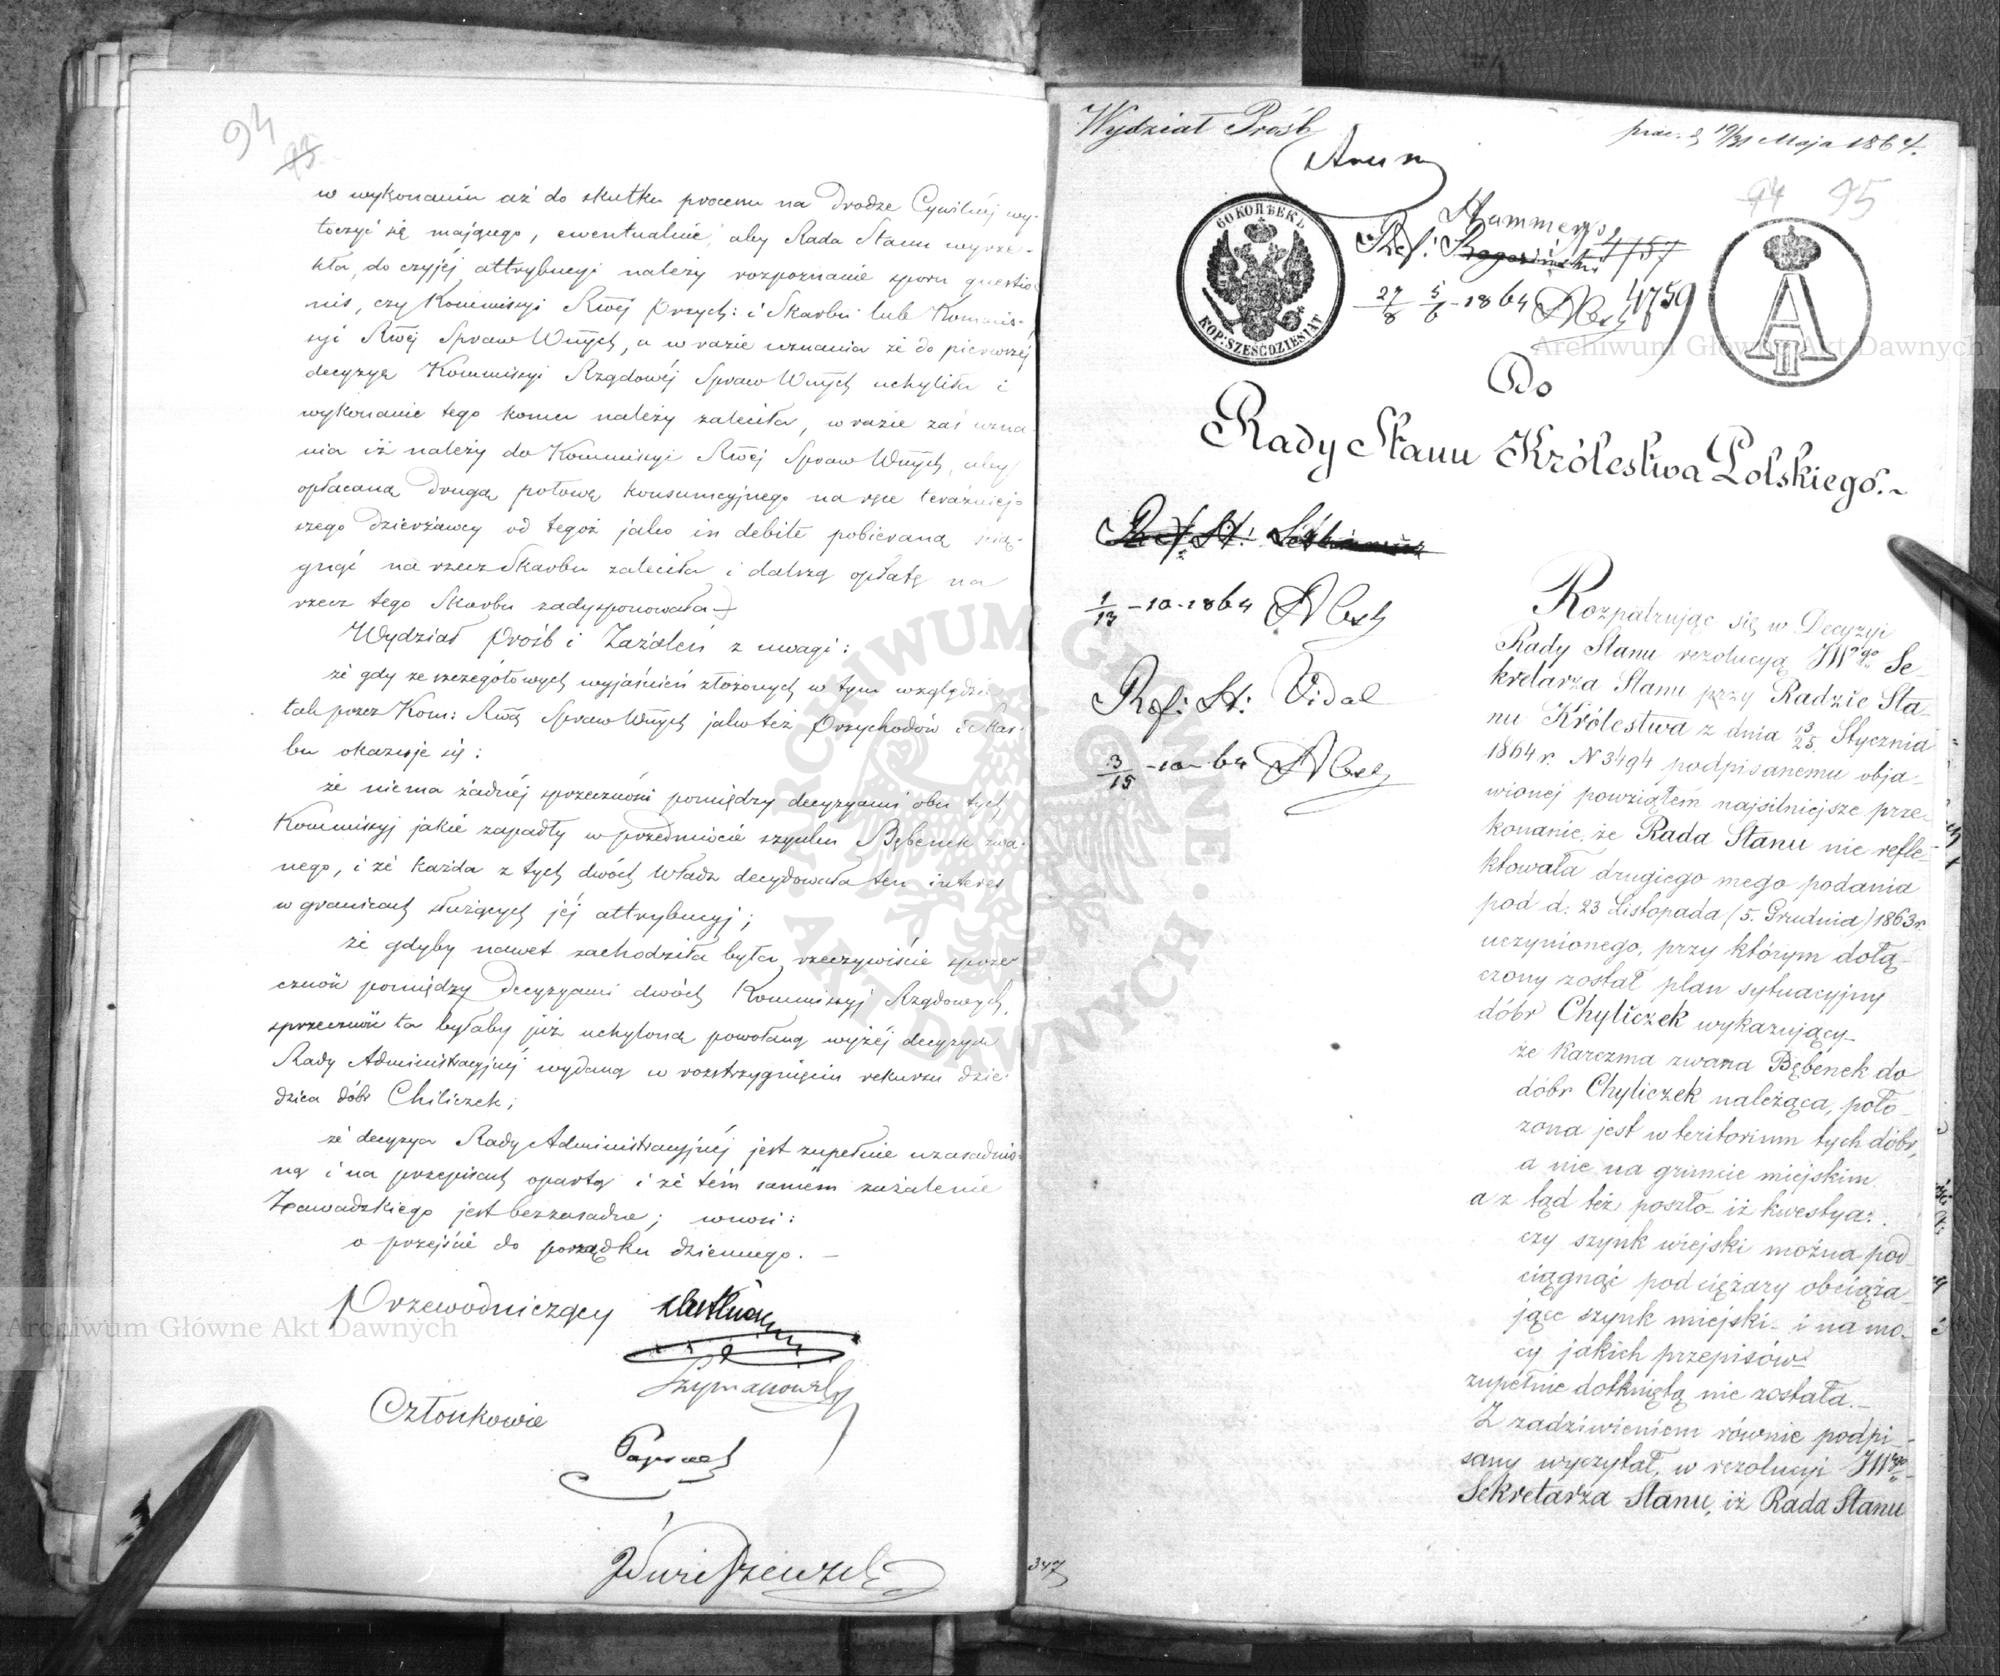 94
93
w wykonaniu aż do skutku procesu na drodze Cywilnéj wy-
toczyć się mającego, ewentualnie, aby Rada Stanu wyrze-
kła, do czyjéj attrybucyi należy rozpoznanie sporu questio-
nis, czy Kommissyi Rwéj Przych: i Skarbu lub Kommis-
syi Rwéj Spraw Wnych, a w razie uznania że do pierwszéj
decyzyą Kommissyi Rządowéj Spraw Wnych uchyliła i
wykonanie tego komu należy zaleciła, w razie zaś uzna-
nia iż należy do Kommissyi Rwéj Spraw Wnych, aby
opłacaną drugą połowę konsumcyjnego na ręce teraźniej-
szego dzierżawcy od tegoż jako in debite pobieraną ścią-
gnąć na rzecz Skarbu zaleciła i dalszą opłatę na
rzecz tego Skarbu zadysponowała
Wydział Próśb i Zażaleń z uwagi:
że gdy ze szczegółowych wyjaśnień złożonych w tym względzie
tak przez Kom: Rwą Spraw Wnych jako też Przychodów i Skar-
bu okazuje się:
że niema żadnéj sprzeczności pomiędzy decyzyami obu tych
Kommissyj jakie zapadły w przedmiocie szynku Bębenek zwa-
nego, i że każda z tych dwóch Władz decydowała ten interes
w granicach służących jéj attrybucyj;
że gdyby nawet zachodziła była rzeczywiście sprze-
czność pomiędzy decyzyami dwóch Kommissyj Rządowych,
sprzeczność ta byłaby już uchyloną powołaną wyżéj decyzyą
Rady Administracyjnéj wydaną w rozstrzygnięciu rekursu dzie-
dzica dóbr Chiliczek;
że decyzya Rady Administracyjnéj jest zupełnie uzasadnio-
ną i na przepisach opartą i że tém samém zażalenie
Zawadzkiego jest bezzasadne; wnosi:
o przejście do porządku dziennego. —
Przewodniczący
Szymanowski
Członkowie
Wydział Próśb
prae. d 19/31 Maja 1864.
94 95
60 КОПѢЕКЪ
KOP: SZEŚĆDZIESIĄT
Ref:
4757
27/8 5/6 - 1864
4759
A II
Do
Rady Stanu Królestwa Polskiego.~
Ref: St:
1/13 - 10 - 1864
Ref: St: Vidal
3/15 - 10 - 64
Rozpatrując się w Decyzyi
Rady Stanu rezolucyą JWgo Se-
kretarza Stanu przy Radzie Sta-
nu Królestwa z dnia 13/25 Stycznia
1864 r. N 3494 podpisanemu obja-
wionej powziąłem najsilniejsze prze-
konanie, że Rada Stanu nie refle-
ktowała drugiego mego podania
pod d: 23 Listopada (5. Grudnia) 1863 r.
uczynionego, przy którym dołą-
czony został plan sytuacyjny
dóbr Chyliczek wykazujący
że karczma zwana Bębenek do
dóbr Chyliczek należąca, poło-
żona jest w teritorium tych dóbr,
a nie na gruncie miejskim
a z tąd też poszło iż kwestya:
czy szynk wiejski można pod-
ciągnąć pod ciężary obciąża-
jące szynk miejski i na mo-
cy jakich przepisów
zupełnie dotkniętą nie została.—
Z zadziwieniem równie podpi-
sany wyczytał, w rezolucyi JWgo
Sekretarza Stanu, iż Rada Stanu
347
ARCHIWUM GŁÓWNE AKT DAWNYCH
Archiwum Główne Akt Dawnych
Archiwum Główne Akt Dawnych